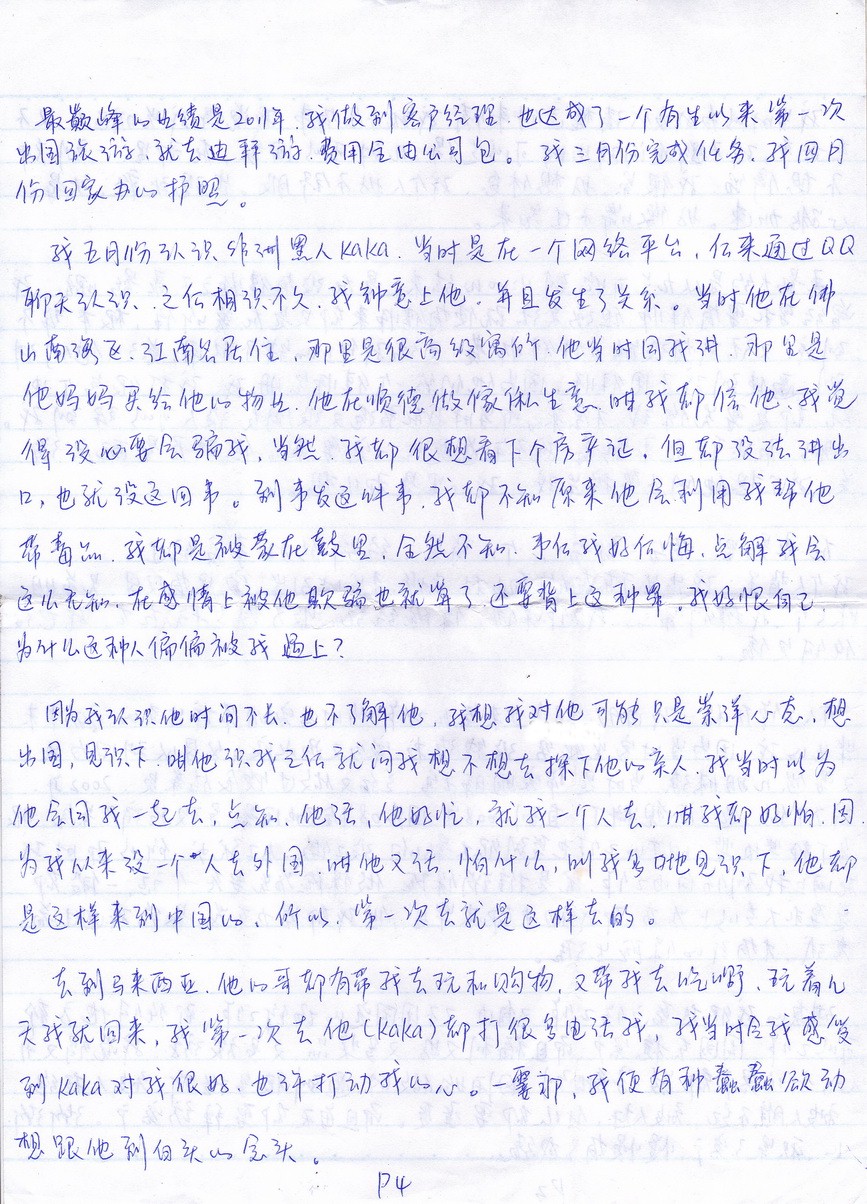 最巅峰的业绩是2011年,我做到客户经理,也达成了一个有生以来第一次
出国旅游,就去迪拜游,费用全由公司包。我三月份完成任务,我四月
份回家办的护照。
我五月份认识非洲黑人KaKa.当时是在一个网络平台,后来通过QQ
聊天认识、之后相识不久,我钟意上他,并且发生了关系。当时他在佛
山南海区、江南名居住,那里是很高级寓所,他当时同我讲,那里是
他妈妈买给他的物业,他在顺德做傢俬生意,咁我却信他、我觉
得没必要会骗我,当然,我却很想看下个房产证,但却没法讲出
口,也就没这回事。到事发这件事,我却不知原来他会利用我帮他
带毒品,我却是被蒙在鼓里,全然不知.事后我好后悔,点解我会
这么无知,在感情上被他欺骗也就算了,还要背上这种罪。我好恨自己
为什么这种人偏偏被我遇上?
因为我认识他时间不长.也不了解他,我想我对他可能只是崇洋心态,想
出国,见识下,咁他识我之后就问我想不想去探下他的亲人,我当时以为
他会同我一起去,点知,他话,他好忙,就我一个人去,咁我却好怕.因
为我从来没一个人去外国,咁他又话,怕什么,叫我多D地见识下,他却
是这样来到中国的,所以,第一次去就是这样去的。
去到马来西亚,他的哥却有带我去玩和购物,又带我去吃嘢,玩着几
天我就回来,我第一次去他(KaKa)却打很多电话我,我当时令我感觉
到KaKa对我很好,也许打动我的心。一霎那,我便有种蠢蠢欲动
想跟他到白头的念头。
P4